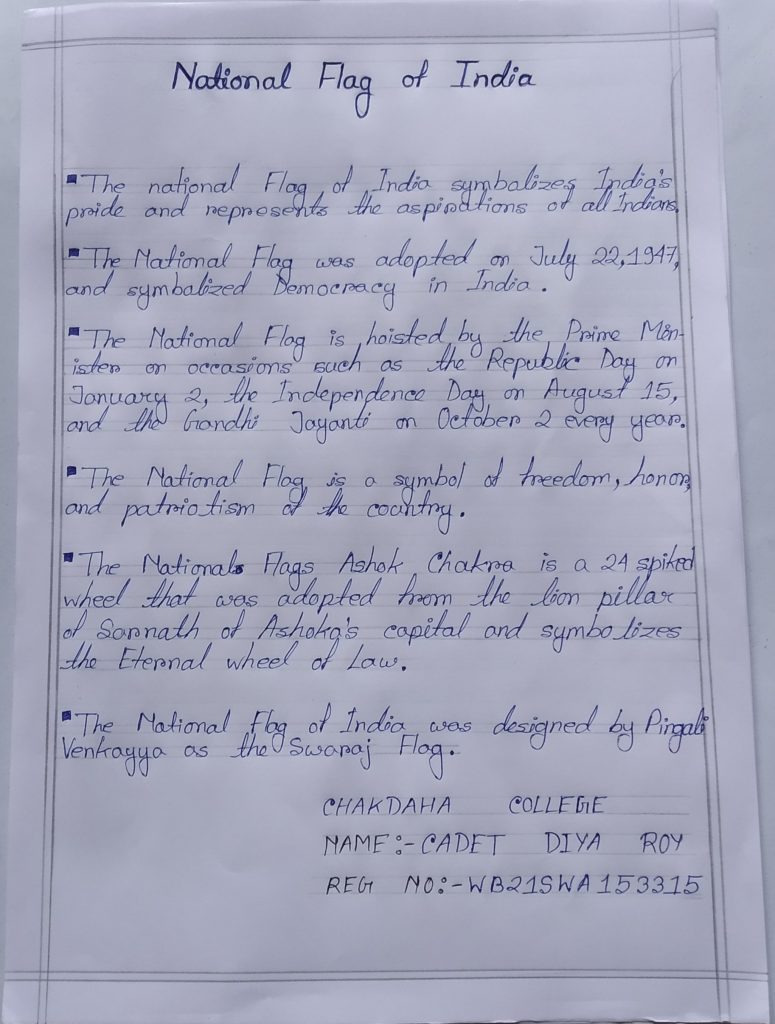 National Flag of India
▪The national Flag of India symbalizes India's
pride and represents the aspirations of all Indians.
▪The National Flag was adopted on July 22,1947,
and symbalized Democracy in India.
▪The National Flag is hoisted by the Prime Min-
ister on occasions such as the Republic Day on
January 2, the Independence Day on August 15,
and the Gandhi Jayanti on October 2 every year.
▪The National Flag is a symbol of freedom, honor,
and patriotism of the country.
▪The Nationals Flags Ashok Chakra is a 24 spiked
wheel that was adopted from the lion pillar
of Sarnath of Ashoka's capital and symbolizes
the Eternal wheel of Law.
▪The National Flag of India was designed by Pingali
Venkayya as the Swaraj Flag.
CHAKDAHA COLLEGE
NAME:-CADET DIYA ROY
REG NO:-WB21SWA153315